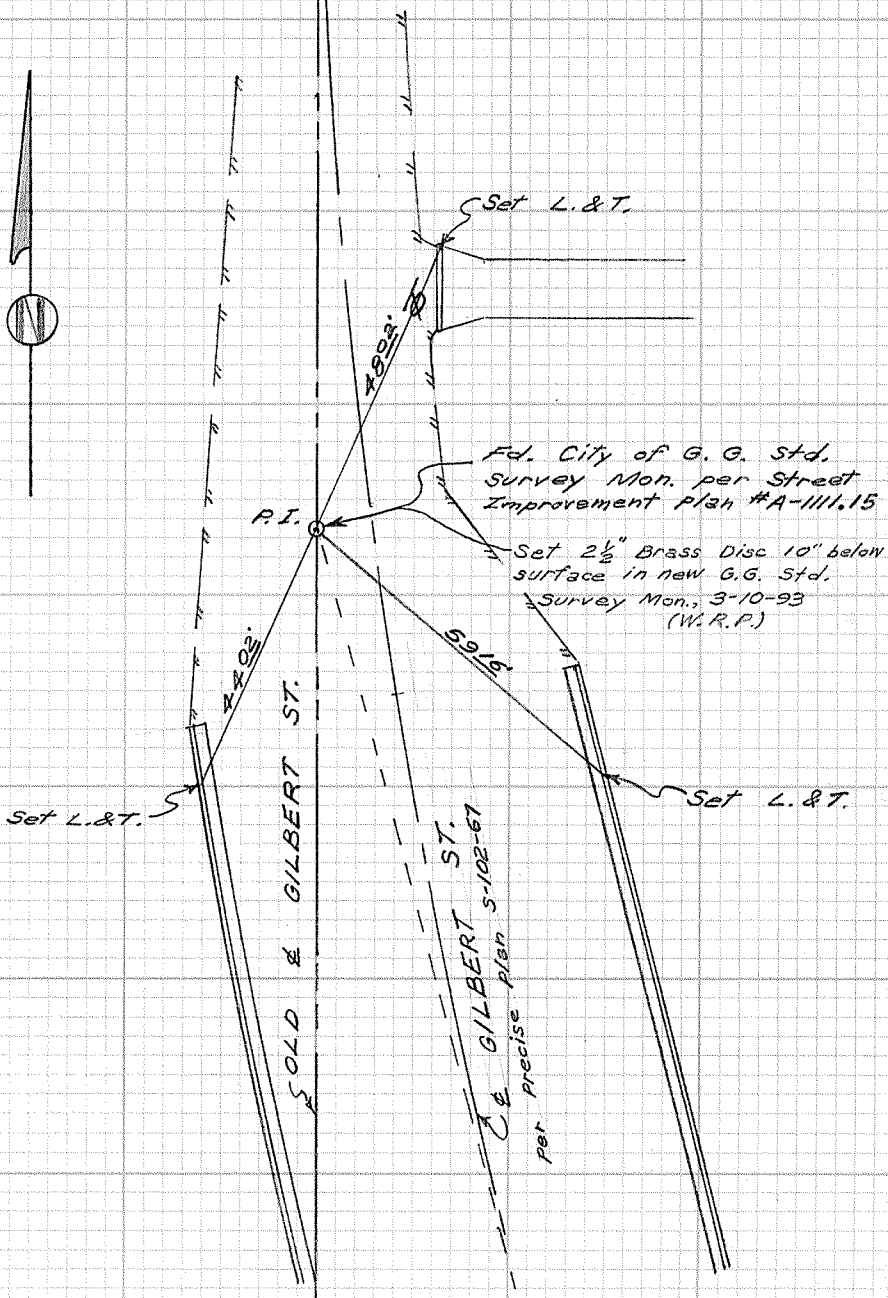 Set L. & T.
48⁰²'
N
Fd. City of G. G. Std.
Survey Mon. per Street
Improvement Plan #A-1111.15
P.I.
Set 2½" Brass Disc 10" below
surface in new G.G. Std.
Survey Mon., 3-10-93
(W.R.P.)
59¹⁹'
44⁰²'
Set L. & T.
Set L. & T.
OLD ℄ GILBERT ST.
℄ GILBERT ST.
per precise plan S-102-67